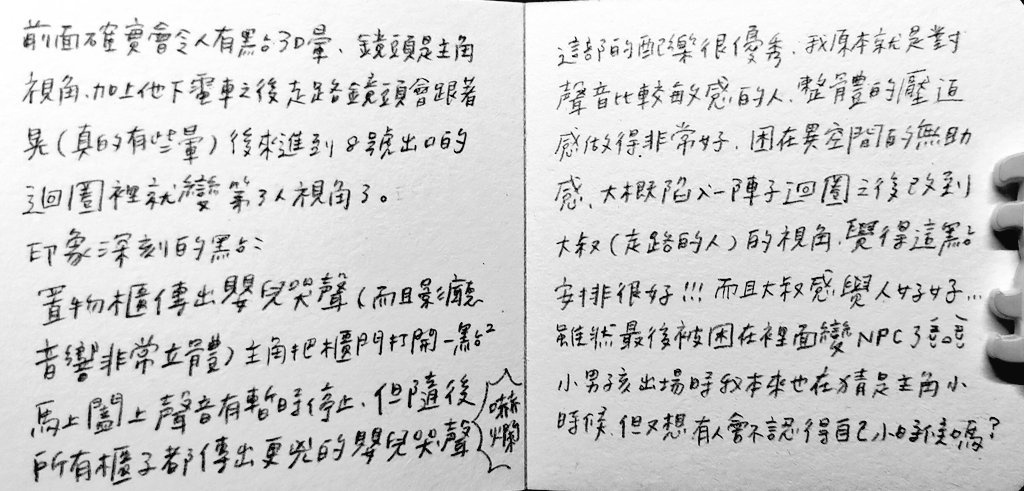 前面確實會令人有點3D暈、鏡頭是主角
視角、加上他下電車之後走路鏡頭會跟著
晃(真的有些暈)後來進到8號出口的
迴圈裡就變第3人視角了。
印象深刻的點:
置物櫃傳出嬰兒哭聲(而且影廳
音響非常立體)主角把櫃門打開一點²
馬上闔上聲音有暫時停止、但隨後
所有櫃子都傳出更兇的嬰兒哭聲
嚇爛
這部的配樂很優秀、我原本就是對
聲音比較敏感的人、整體的壓迫
感做得非常好、困在異空間的無助
感、大概陷入一陣子迴圈之後改到
大叔(走路的人)的視角、覺得這點
安排很好!!!而且大叔感覺人好好...
雖然最後被困在裡面變NPC了
小男孩出場時我本來也在猜是主角小
時候、但又想、有人會不認得自己小時候嗎?